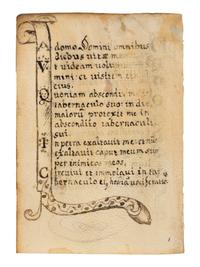 domo Domini omnibus
diebus vitæ me
Vt videam volun
mini et visitem te
eius.
Quoniam abscondit me
tabernaculo suo in die
malorū protexit me in
abscondito tabernaculi
sui.
In petra exaltavit me et nūc
exaltavit caput meum sup
per inimicos meos,
Circuivi et immolavi in ta
bernaculo ei,